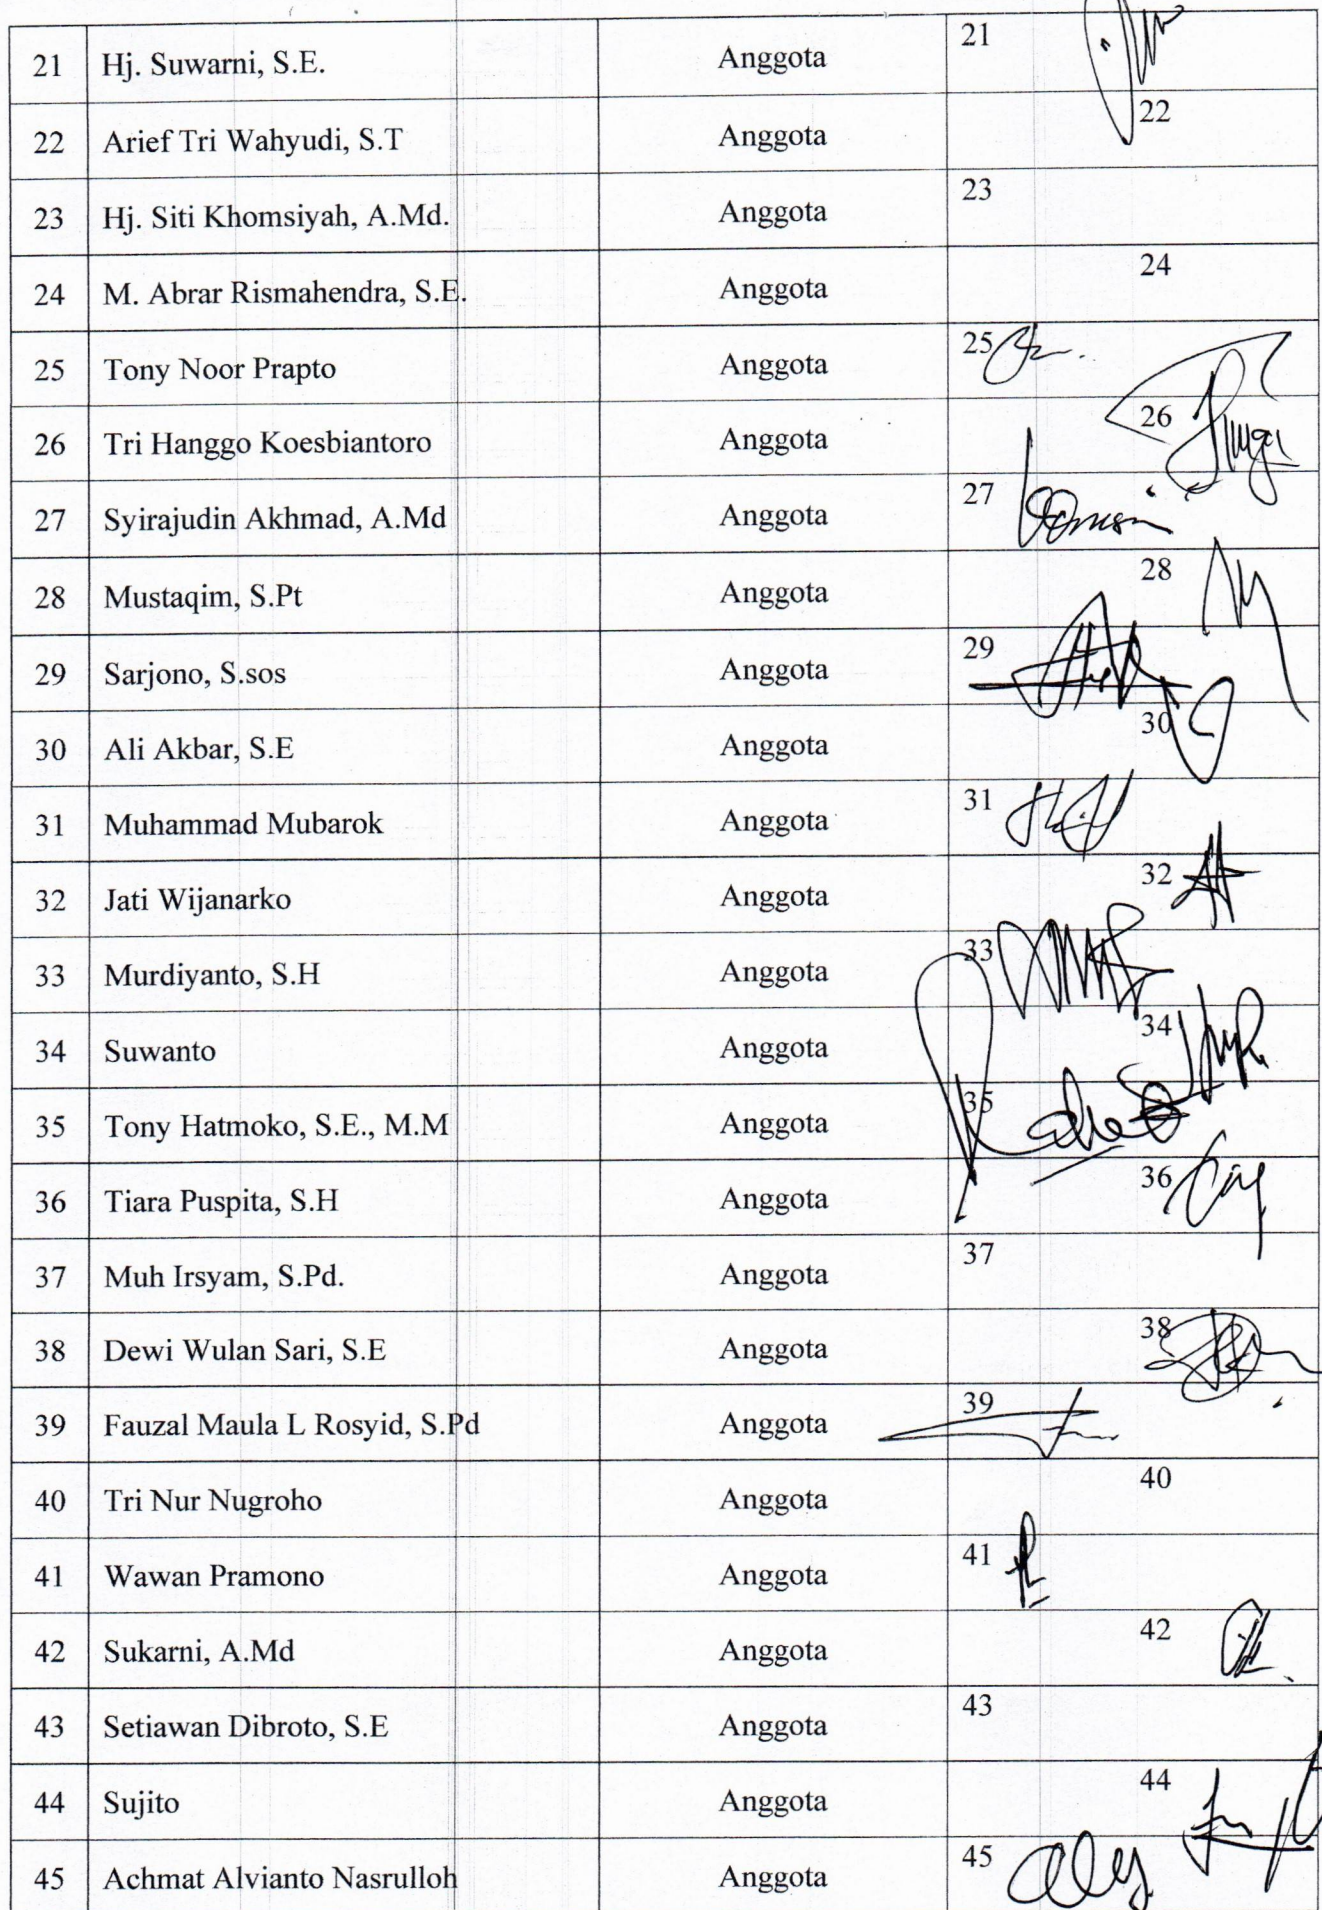 21 Hj. Suwarni, S.E. Anggota 21
22 Arief Tri Wahyudi, S.T Anggota 22
23 Hj. Siti Khomsiyah, A.Md. Anggota 23
24 M. Abrar Rismahendra, S.E. Anggota 24
25 Tony Noor Prapto Anggota 25
26 Tri Hanggo Koesbiantoro Anggota 26
27 Syirajudin Akhmad, A.Md Anggota 27
28 Mustaqim, S.Pt Anggota 28
29 Sarjono, S.sos Anggota 29
30 Ali Akbar, S.E Anggota 30
31 Muhammad Mubarok Anggota 31
32 Jati Wijanarko Anggota 32
33 Murdiyanto, S.H Anggota 33
34 Suwanto Anggota 34
35 Tony Hatmoko, S.E., M.M Anggota 35
36 Tiara Puspita, S.H Anggota 36
37 Muh Irsyam, S.Pd. Anggota 37
38 Dewi Wulan Sari, S.E Anggota 38
39 Fauzal Maula L Rosyid, S.Pd Anggota 39
40 Tri Nur Nugroho Anggota 40
41 Wawan Pramono Anggota 41
42 Sukarni, A.Md Anggota 42
43 Setiawan Dibroto, S.E Anggota 43
44 Sujito Anggota 44
45 Achmat Alvianto Nasrulloh Anggota 45